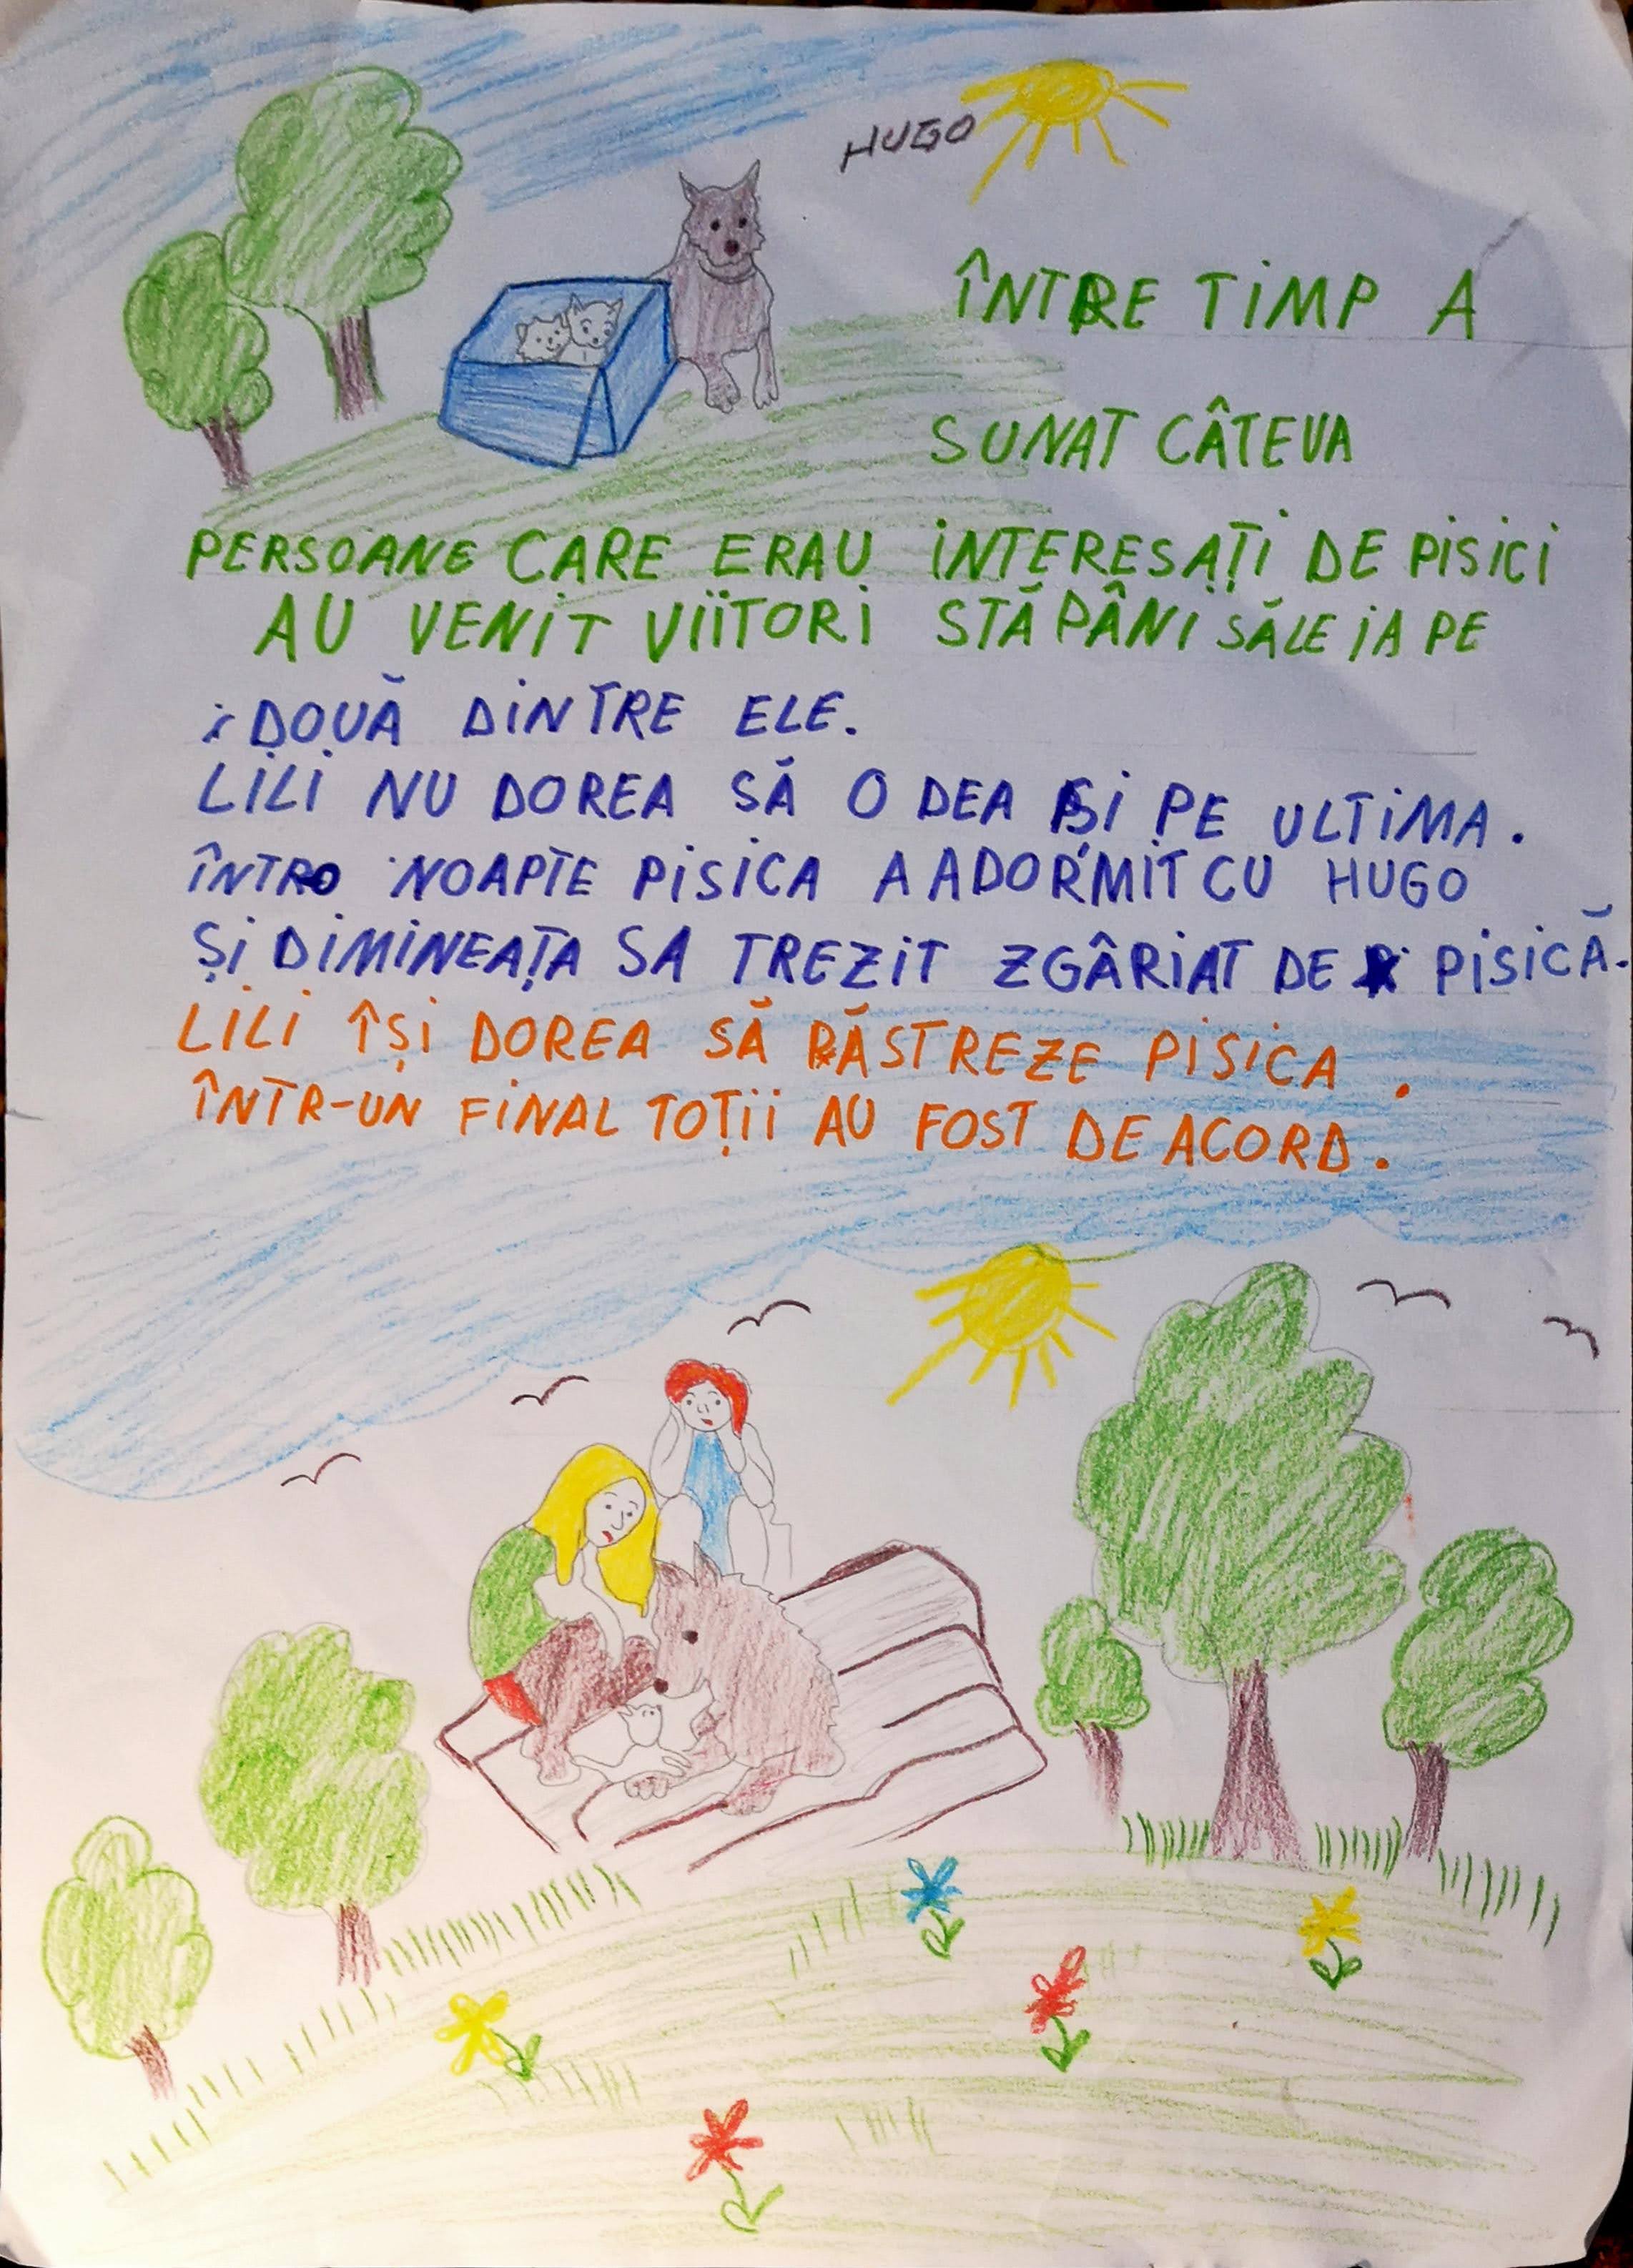 HUGO
ÎNTRE TiMP A
SUNAT CÂTEVA
PERSOANE CARE ERAU iNTERESAȚi DE PiSiCi
AU VENiT ViiTORi STĂPÂNi SĂLE iA PE
DOUĂ DiNTRE ELE.
LiLi NU DOREA SĂ O DEA Și PE ULTiMA.
ÎNTRO NOAPTE PiSiCA A ADORMiT CU HUGO
Și DiMiNEAȚA SA TREZiT ZGÂRiAT DE PiSiCĂ.
LiLi ÎȘi DOREA SĂ PĂSTREZE PiSiCA.
ÎNTR-UN FiNAL TOȚii AU FOST DE ACORD.